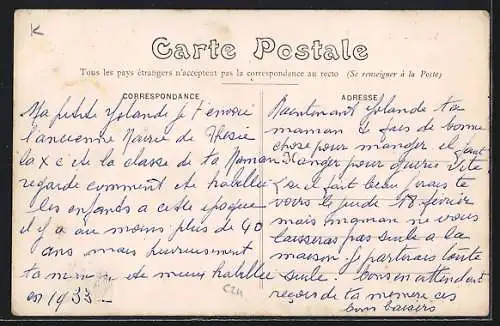 K
Carte Postale
Tous les pays étrangers n'acceptent pas la correspondance au recto (Se renseigner à la Poste)
CORRESPONDANCE
Ma petite Yolande je t'envoie
l'ancienne Mairie de
la X c'é la classe de ta Maman
regarde comment été habillée
les enfants a cette époque
il y a au moins plus de 40
ans mais heureusement
ta été mieux habillée
en 1933 —
ADRESSE
Maintenant Yolande ta
maman te fais de bonne
chose pour manger il faut
manger pour guérir vite.
Si il fait beau j'orais te
voire le jeudi 18 février
mais maman ne vous
laisseras pas seule a la
maison. Je partirais toute
seule. Bons en attendant
reçois de ta memere ces
bons baisers
C211